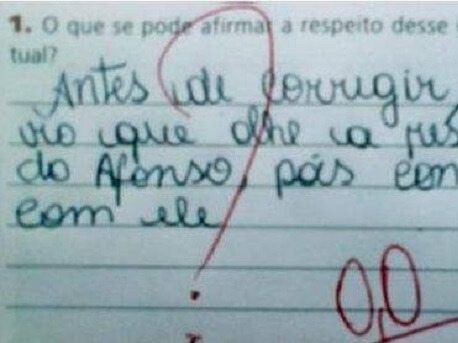 1. O que se pode afirmar a respeito desse
tual?
Antes de corrigir,
que olhe a res
do Afonso, pois
com ele
0,0